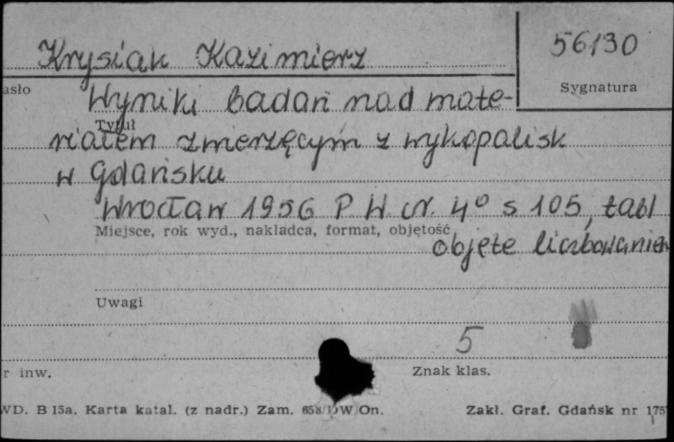 Krysiak Kazimierz
56130
asło
Sygnatura
Wyniki badań nad mate-
Tytuł
riałem zwierzęcym z wykopalisk
w Gdańsku
Wrocław 1956 P W 4° s 105, tabl
Miejsce, rok wyd., nakładca, format, objętość
objęte liczbowaniem
Uwagi
5
r inw.
Znak klas.
WD. B 15a. Karta katal. (z nadr.) Zam. DW On.
Zakł. Graf. Gdańsk nr 175